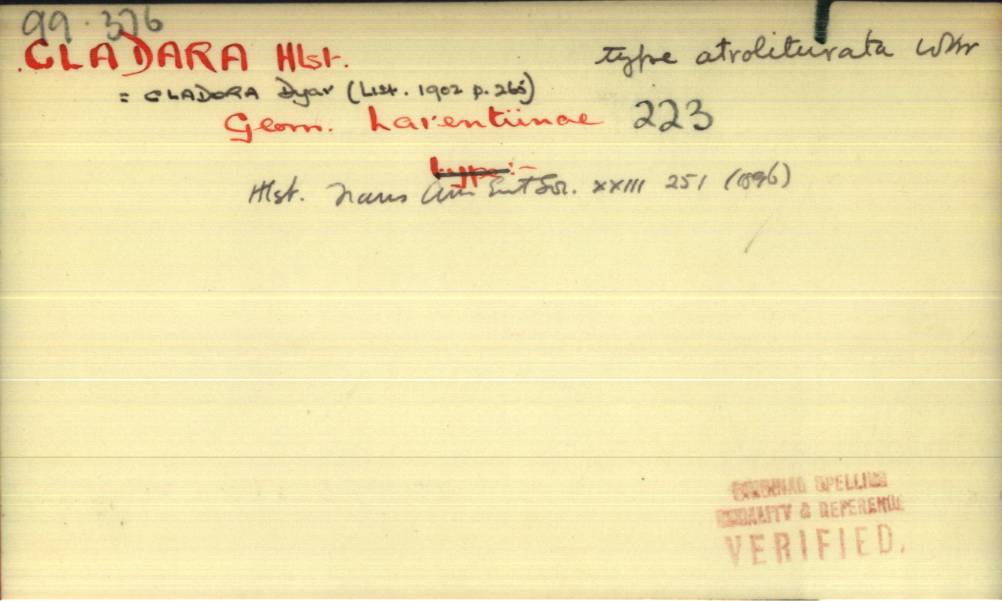 99.376
CLADARA Hlst. type atroliturata Wlkr
= CLADORA Dyar (List. 1902 p. 265)
Geom. Larentiinae 223
type:-
Hlst. Trans Am Ent Soc. XXIII 251 (1896)
ORIGINAL SPELLING
& REFERENCE
VERIFIED.